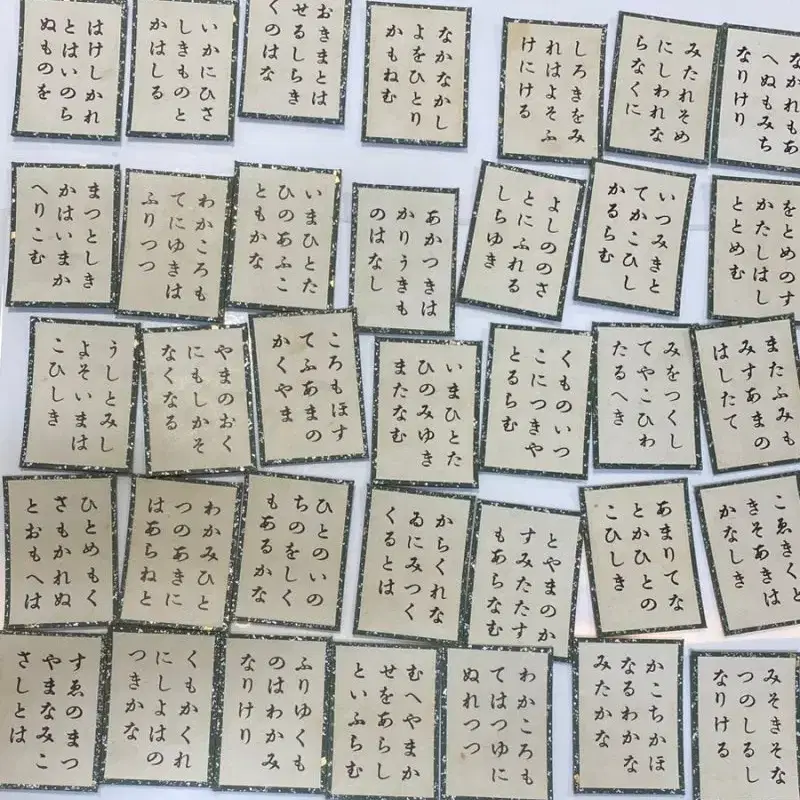 はけしかれ
とはいのら
ぬものを
いかにひさ
しきものと
かはしる
おきまとは
せるしらき
くのはな
なかなかし
よをひとり
かもねむ
しろきをみ
れはよそふ
けにける
みたれそめ
にしわれな
らなくに
なかれもあ
へぬもみち
なりけり
まつとしき
かはいまか
へりこむ
わかころも
てにゆきは
ふりつつ
いまひとた
ひのあふこ
ともかな
あかつきは
かりうきも
のはなし
よしののさ
とにふれる
しらゆき
いつみきと
てかこひし
かるらむ
をとめのす
かたしはし
ととめむ
うしとみし
よそいまは
こひしき
やまのおく
にもしかそ
なくなる
ころもほす
てふあまの
かくやま
いまひとた
ひのみゆき
またなむ
くものいつ
こにつきや
とるらむ
みをつくし
てやこひわ
たるへき
またふみも
みすあまの
はしたて
ひとめもく
さもかれぬ
とおもへは
わかみひと
つのあきに
はあらねと
ひとのいの
ちのをしく
もあるかな
からくれな
ゐにみつく
くるとは
とやまのか
すみたたす
もあらなむ
あまりてな
とかひとの
こひしき
こゑきくと
きそあきは
かなしき
すゑのまつ
やまなみこ
さしとは
くもかくれ
にしよはの
つきかな
ふりゆくも
のはわかみ
なりけり
むへやまか
せをあらし
といふらむ
わかころも
てはつゆに
ぬれつつ
かこちかほ
なるわかな
みたかな
みそきそな
つのしるし
なりける